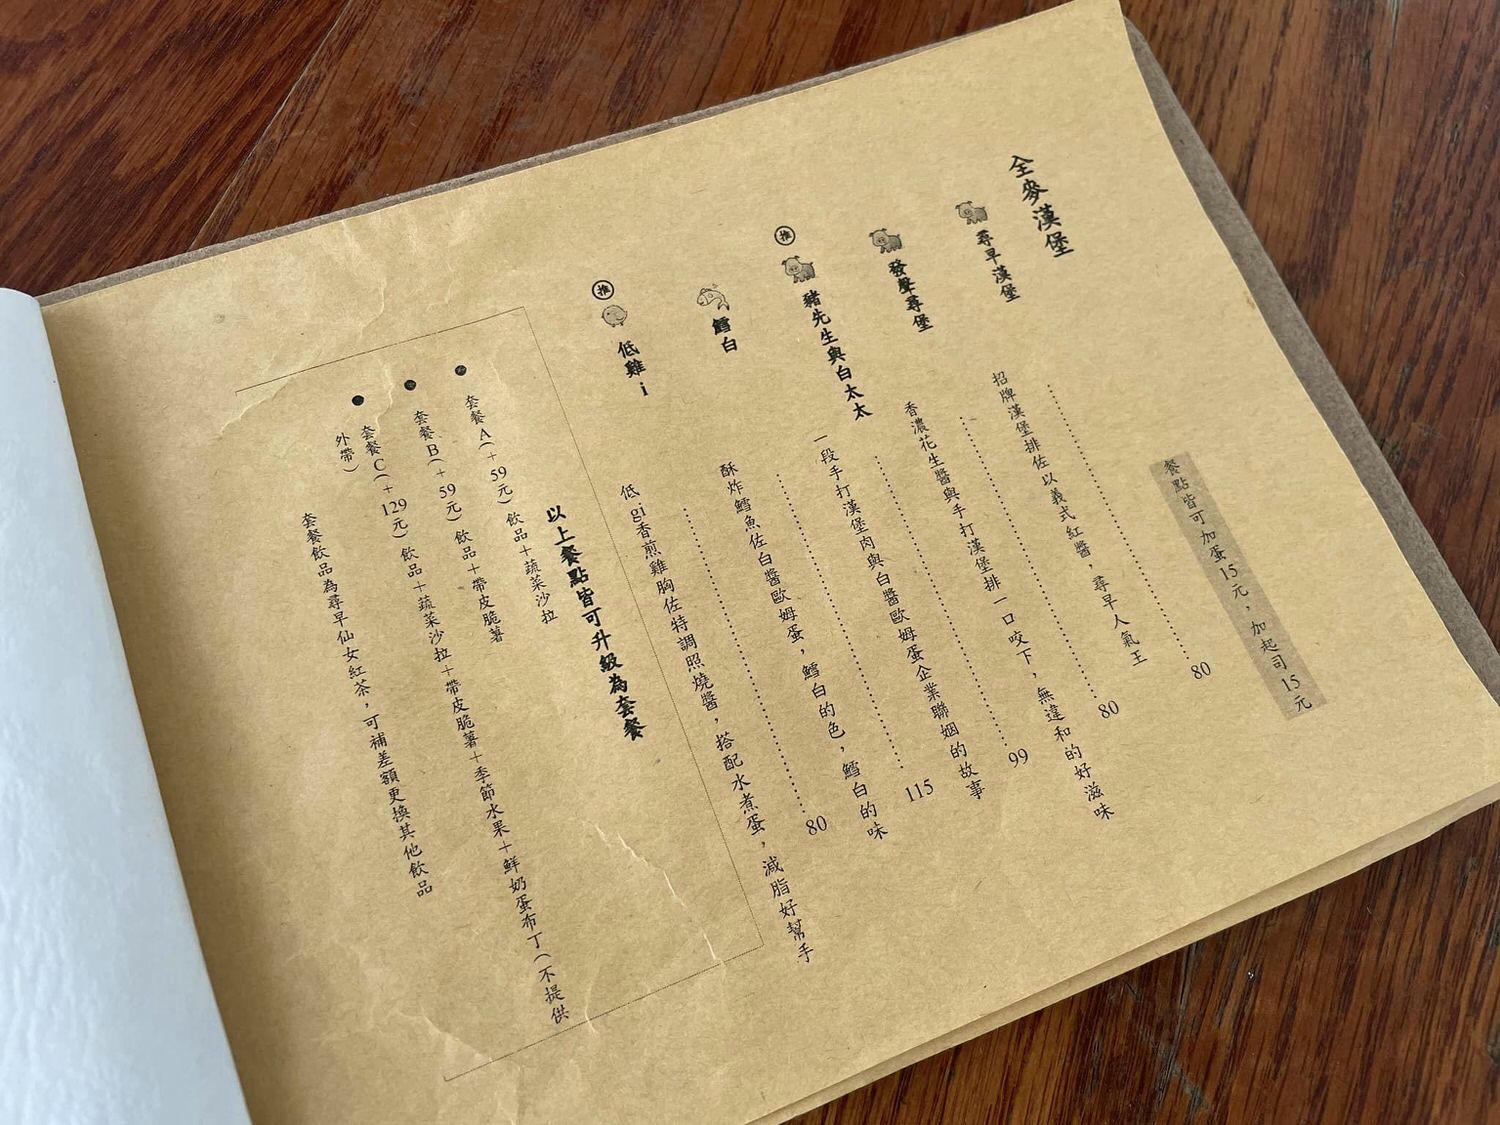 全麥漢堡
餐點皆可加蛋15元，加起司15元
尋早漢堡 80
招牌漢堡排佐以義式紅醬，尋早人氣王
發聲尋堡 80
香濃花生醬與手打漢堡排一口咬下，無違和的好滋味
推 豬先生與白太太 99
一段手打漢堡肉與白醬歐姆蛋企業聯姻的故事
鱈白 115
酥炸鱈魚佐白醬歐姆蛋，鱈白的色，鱈白的味
推 低雞i 80
低gi香煎雞胸佐特調照燒醬，搭配水煮蛋，減脂好幫手
以上餐點皆可升級為套餐
● 套餐A(+59元) 飲品+蔬菜沙拉
● 套餐B(+59元) 飲品+帶皮脆薯
● 套餐C(+129元) 飲品+蔬菜沙拉+帶皮脆薯+季節水果+鮮奶蛋布丁(不提供
外帶)
套餐飲品為尋早仙女紅茶，可補差額更換其他飲品